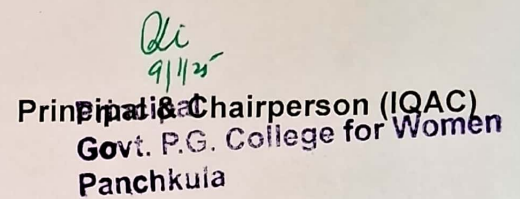 9/1/25
Principal & Chairperson (IQAC)
Principal
Govt. P.G. College for Women
Panchkula